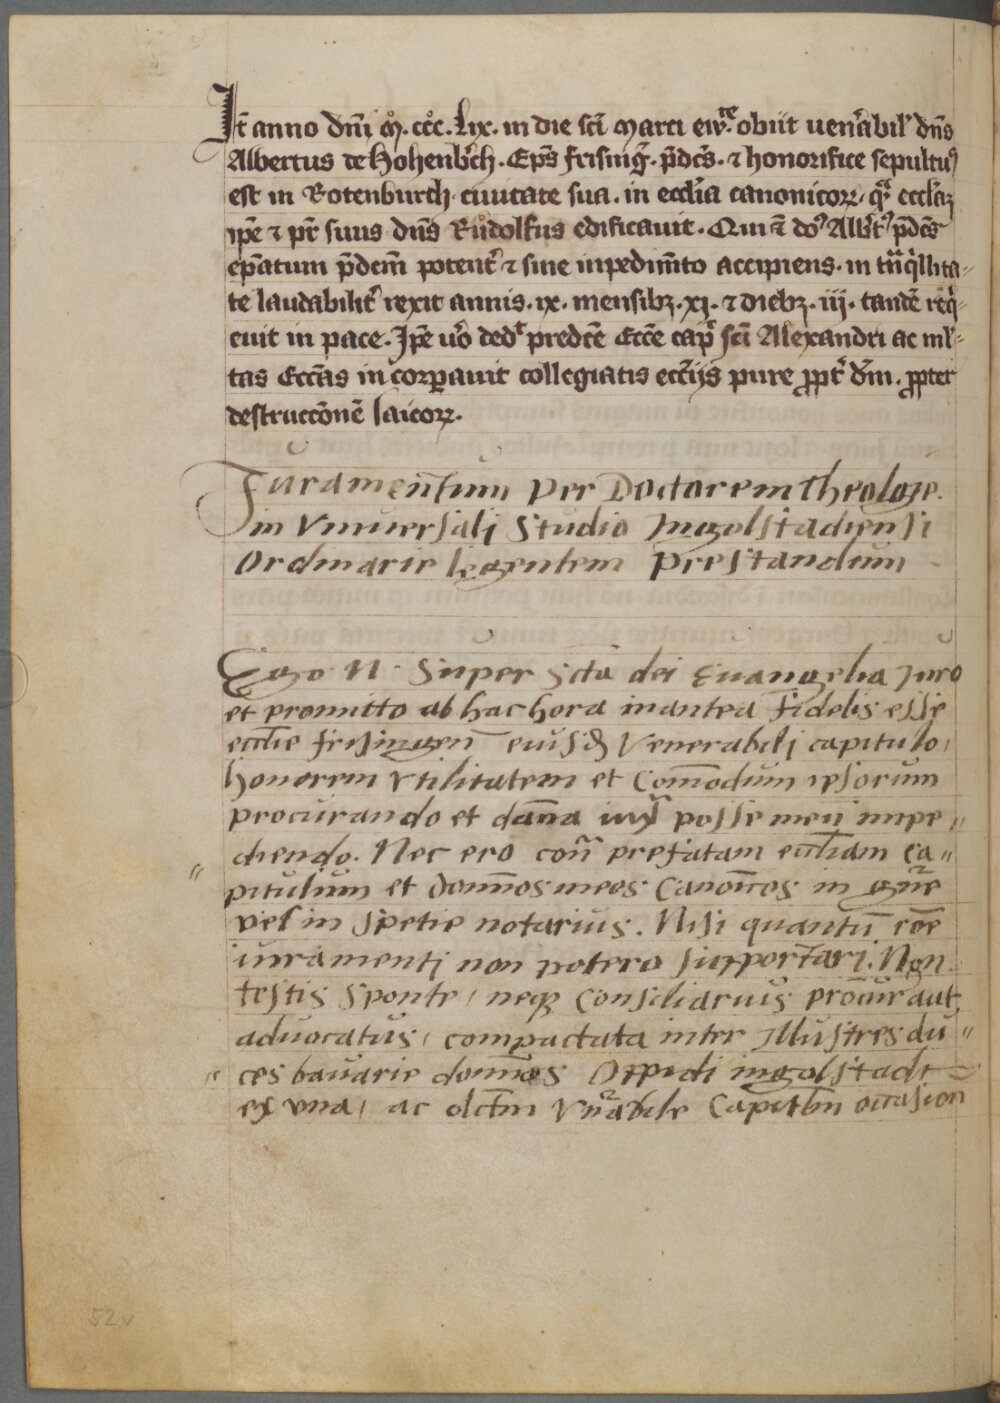 It̄ anno dn̄i mͦ. ccͦc. Lix. in die sc̄i marci ew.te obiit uen̄abil' dn̄s
Albertus de Hohenb̄ch. Ep̄s frisinḡ. p̄dc̄s. ⁊ honorifice sepultuꝰ
est in Rotenburch. ciuitate sua. in eccl̄ia canonicoꝝ. qᷓ eccl̄iaꝫ
ip̄e ⁊ pr̄ suus dn̄s Růdolfus edificauit. Qui ⁊ doꝰ Alb̄tꝰ p̄dc̄s
ep̄atum p̄dcm̄ potent᷑ ⁊ sine inpedim̄to accipiens. in tᷓnqͥllita⸗
te laudabilit᷑ rexit annis. ix. mensibꝫ. xj. ⁊ diebꝫ. iij. tandē reqͥ⸗
euit in pace. Ip̄e u̓o ded᷑ predc̄e Ecc̄e cap̄ sc̄i Alexandri ac ml̓⸗
tas Ecc̄as incorꝑauit collegiatis ecc̄ijs pure ꝓpt᷑ dm̄. ꝓpter
destrucc̄onē laicoꝝ.
Juramen̄tum per Doctorem Theologie.
in Vniuersalj Studio Ingolstadiensi
Ordinarie legentem prestandum
Ego N. Super Sctā dei Euangelia Juro
et promitto ab hac hora inantea fidelis esse
eccl̄ie frisingen̄ eiusꝗ Venerabilj capitulo,
honorem vtilitatem et Com̄odum ipsorum
procurando et dan̄a iux̄ posse meū impe⸗
diendo. Nec ero con̄ prefatam eccl̄iam Ca⸗
pitulum et Domīnos meos Canoīcos in gn̄re
vel in spetie notarius. Nisi quantū rōe
iuramentj non potero supportarj. Non
testis sponte, neqꝫ Consiliarius procur̄ aut
aduocatus, compactata inter Illustres du⸗
ces bauarie domīos Oppidi ingolstadt
ex vna, ac olctm̄ Vn̄rabile Capitl̄m occasion̄
52v